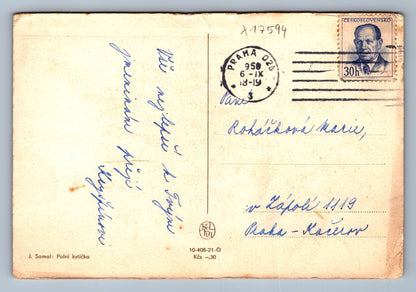 x17594
ČESKOSLOVENSKO
30h
PRAHA 025
958
6.-IX
18-19
Vše nejlepší k Tvým
jmeninám přejí
Paní
Roháčková Marie,
v Zápolí 1119
Praha-Kačerov
10-408-21-O
Kčs -,30
J. Samal: Polní kytička